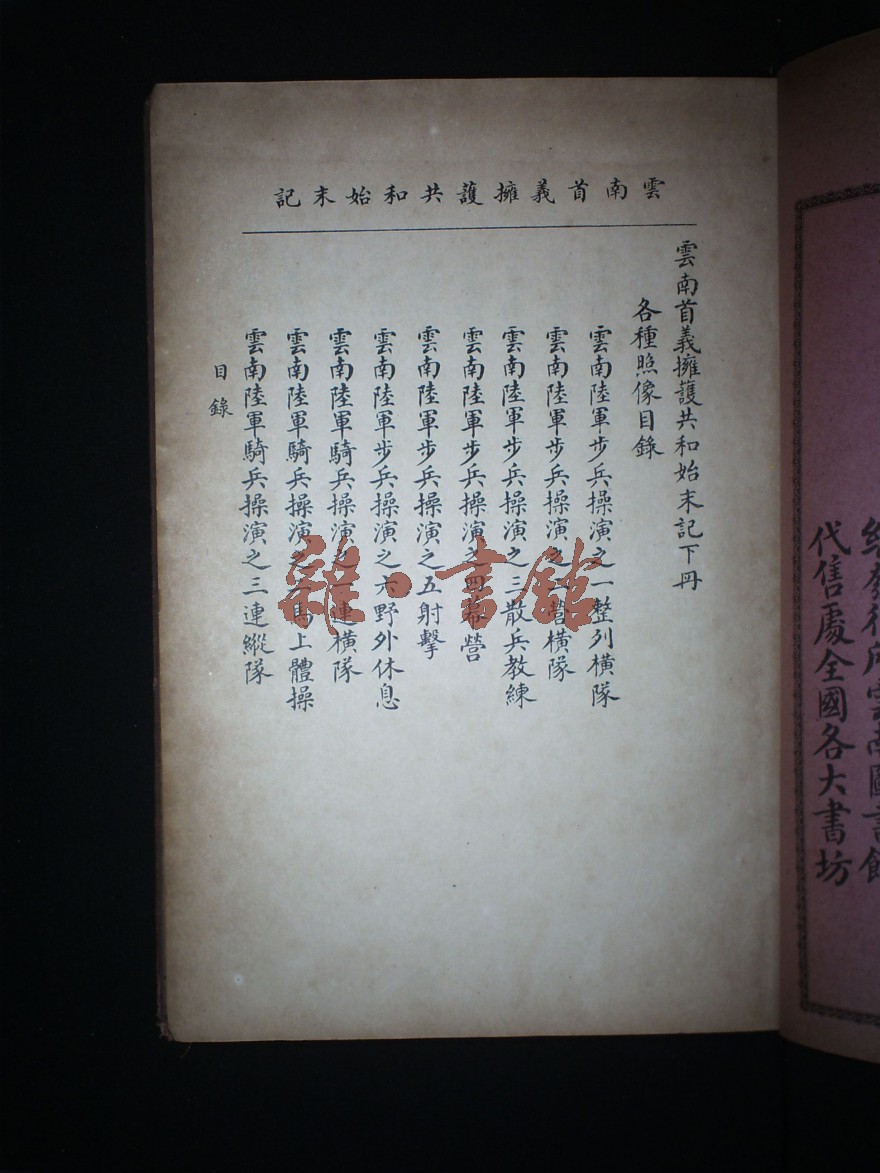 雲南首義擁護共和始末記
雲南首義擁護共和始末記下冊
各種照像目錄
雲南陸軍步兵操演之一整列橫隊
雲南陸軍步兵操演之二營橫隊
雲南陸軍步兵操演之三散兵教練
雲南陸軍步兵操演之四幕營
雲南陸軍步兵操演之五射擊
雲南陸軍步兵操演之六野外休息
雲南陸軍騎兵操演之一連橫隊
雲南陸軍騎兵操演之二馬上體操
雲南陸軍騎兵操演之三連縱隊
目錄
雜·書館
總發行所雲南圖書館
代售處全國各大書坊